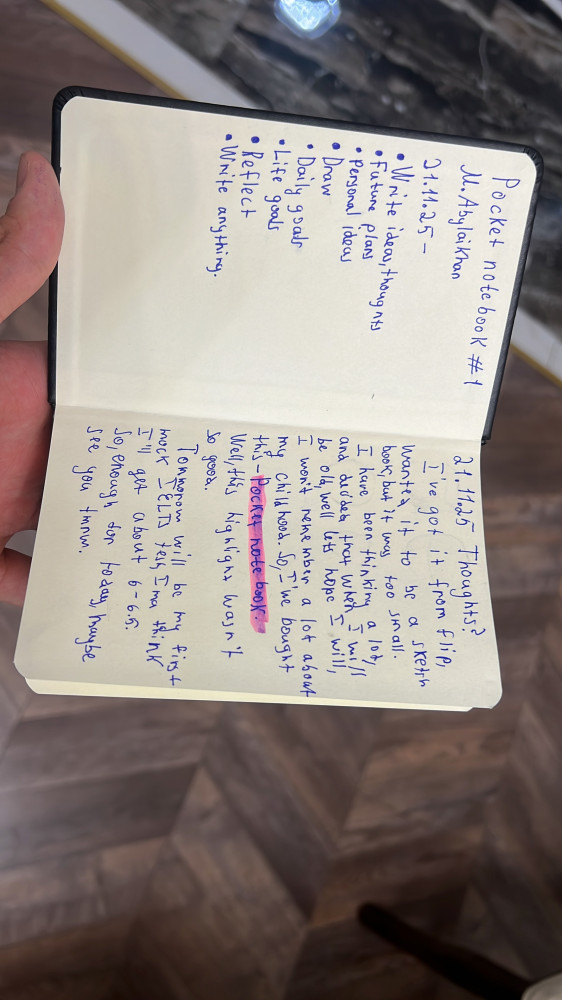 Pocket notebook #1
M. Abylaikhan
21.11.25 -
• Write ideas, thoughts
• Future plans
• Personal ideas
• Draw
• Daily goals
• Life goals
• Reflect
• Write anything.
21.11.25 Thoughts?
I've got it from flip,
wanted it to be a sketch
book, but it was too small.
I have been thinking a lot,
and decided that when I will
be old, well lets hope I will,
I won't remember a lot about
my childhood. So, I've bought
this - Pocket note book.
Well, this highlight wasn't
so good.
Tommorow will be my first
mock IELTS test, I think
I'll get about 6 - 6.5.
So, enough for today, maybe
see you tmrw.